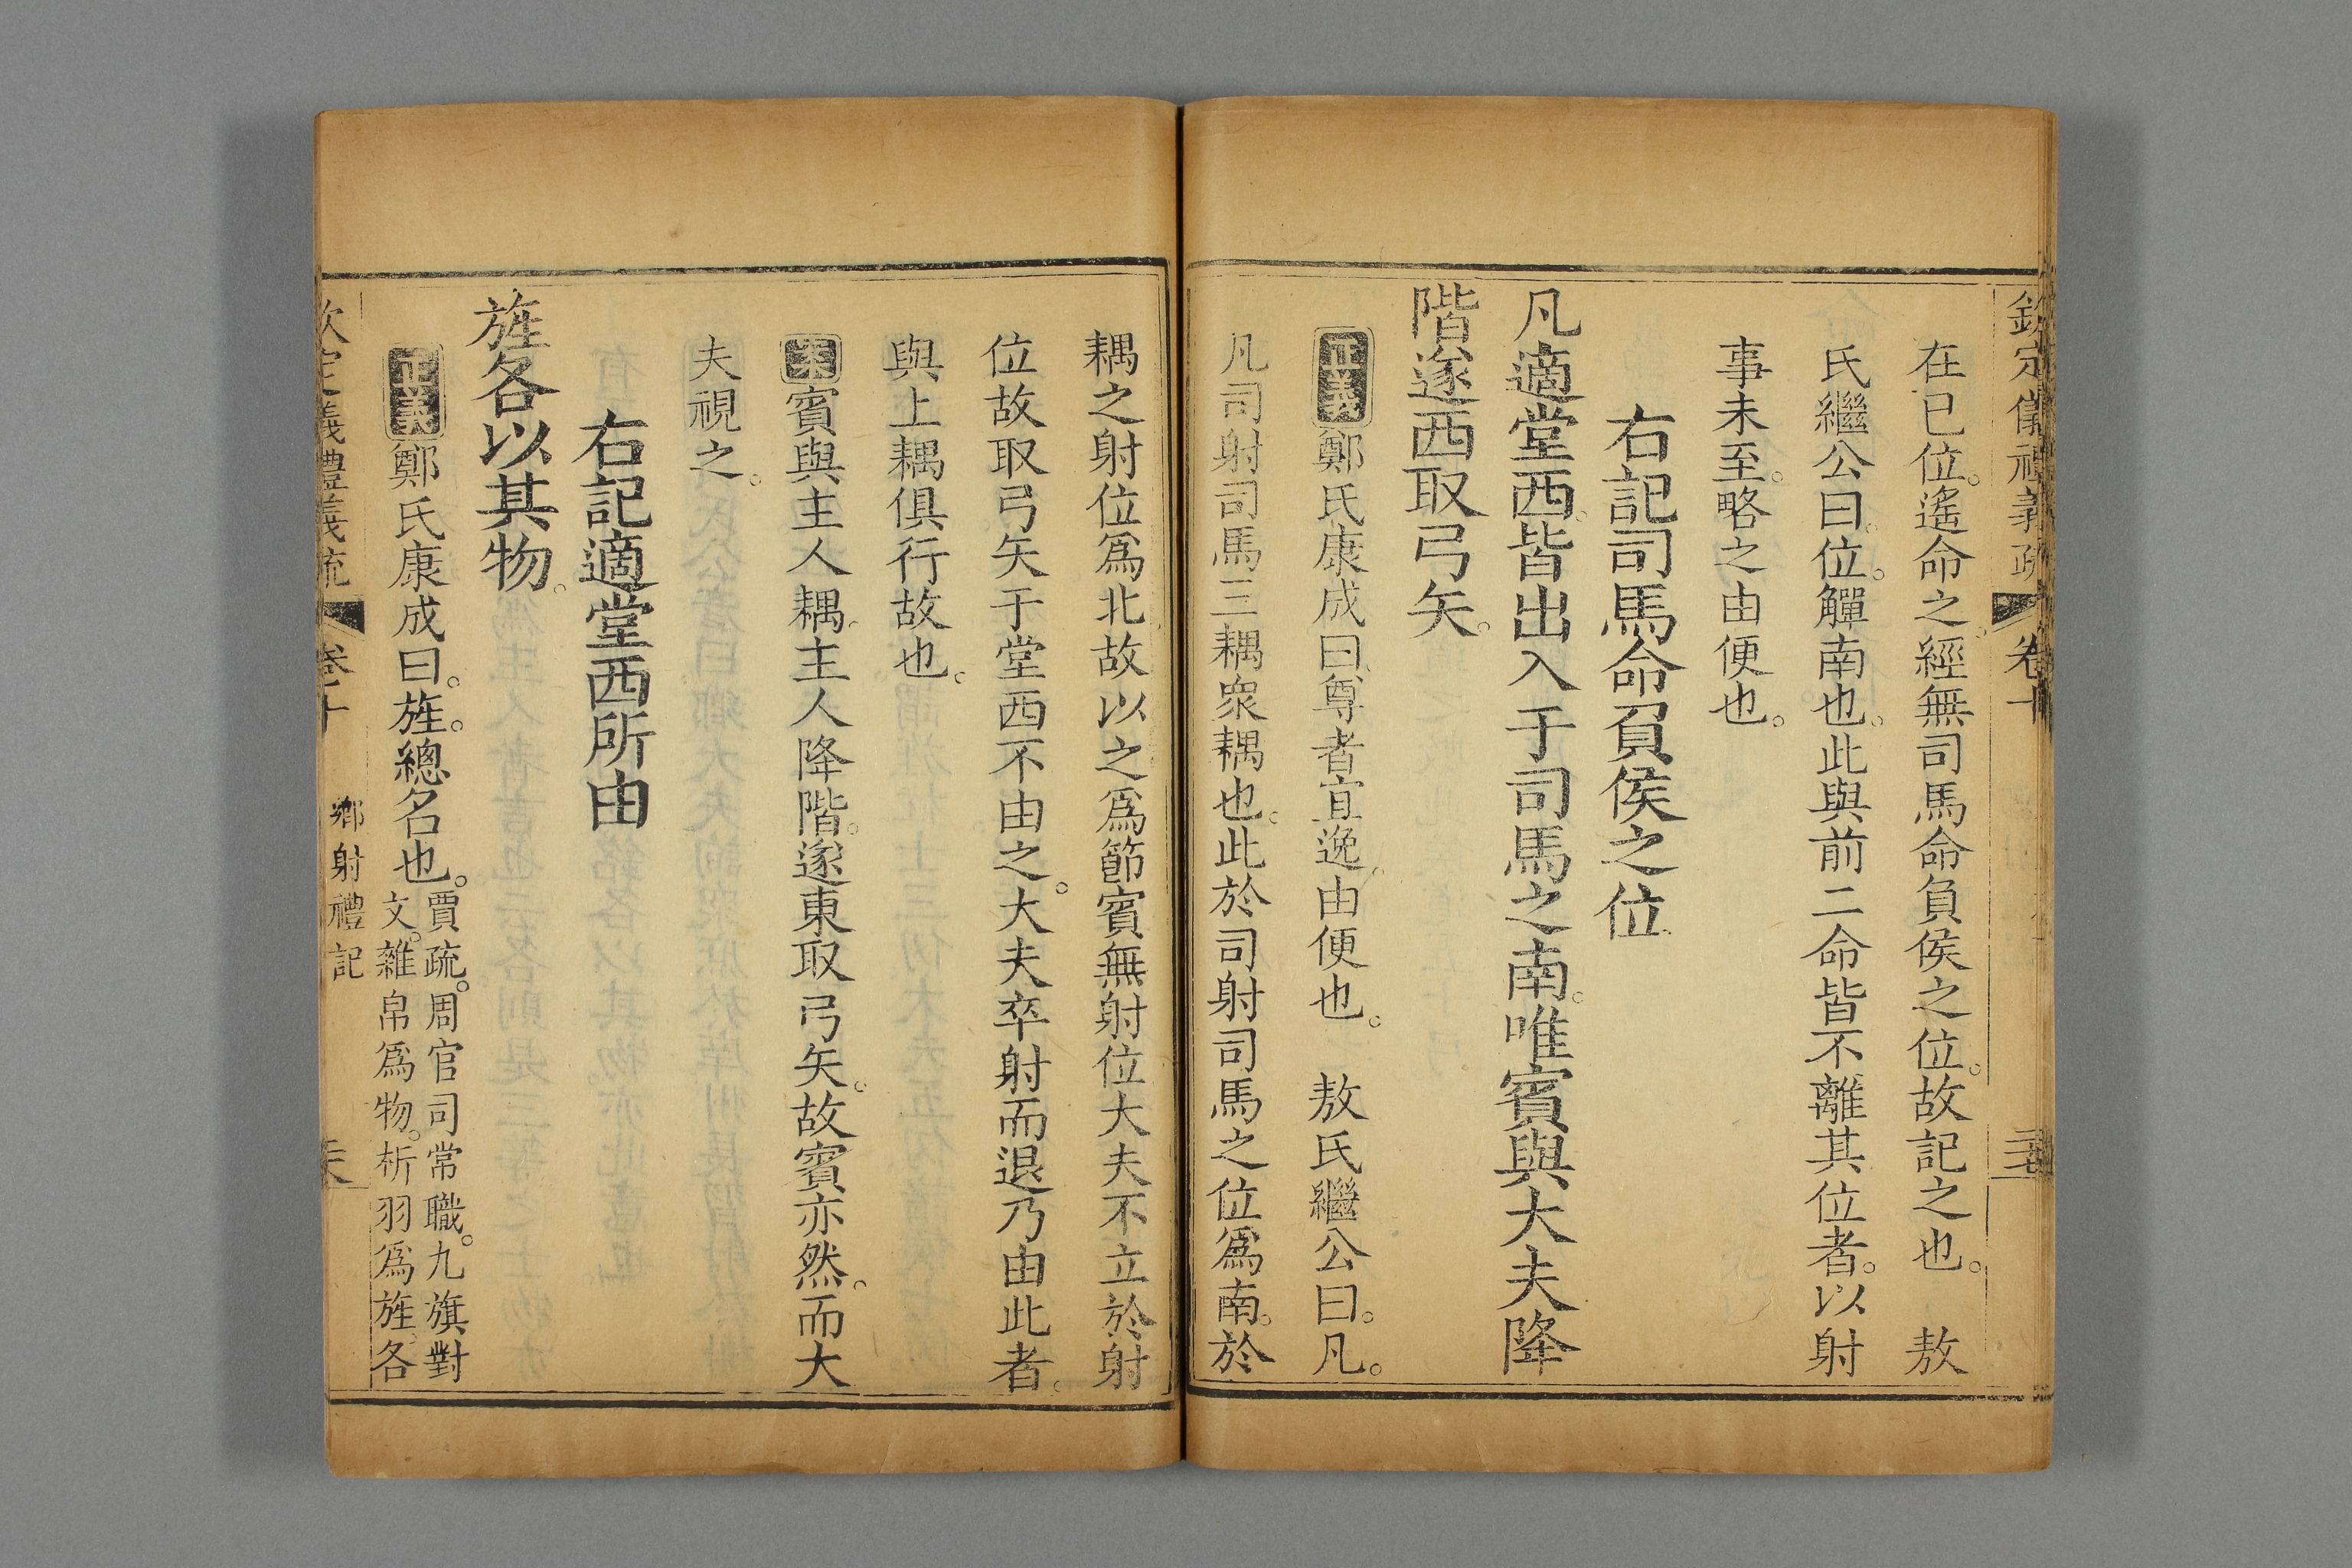 欽定儀禮義疏 卷十
在已位。遙命之。經無司馬命負侯之位。故記之也。 敖
氏繼公曰。位。觶南也。此與前二命皆不離其位者。以射
事未至。略之由便也。
右記司馬命負侯之位
凡適堂西。皆出入于司馬之南。唯賓與大夫降
階遂西取弓矢。
正義鄭氏康成曰。尊者宜逸。由便也。 敖氏繼公曰。凡。
凡司射司馬三耦衆耦也。此於司射司馬之位爲南。於
耦之射位爲北故以之爲節賓無射位大夫不立於射
位故取弓矢于堂西不由之。大夫卒射而退乃由此者。
與上耦俱行故也。
賓與主人耦。主人降階。遂東取弓矢。故賓亦然。而大
夫視之。
右記適堂西所由
旌各以其物。
正義鄭氏康成曰。旌。總名也。賈疏。周官司常職。九旗對
文。雜帛爲物。析羽爲旌。各
欽定儀禮義疏 卷十 鄉射禮記